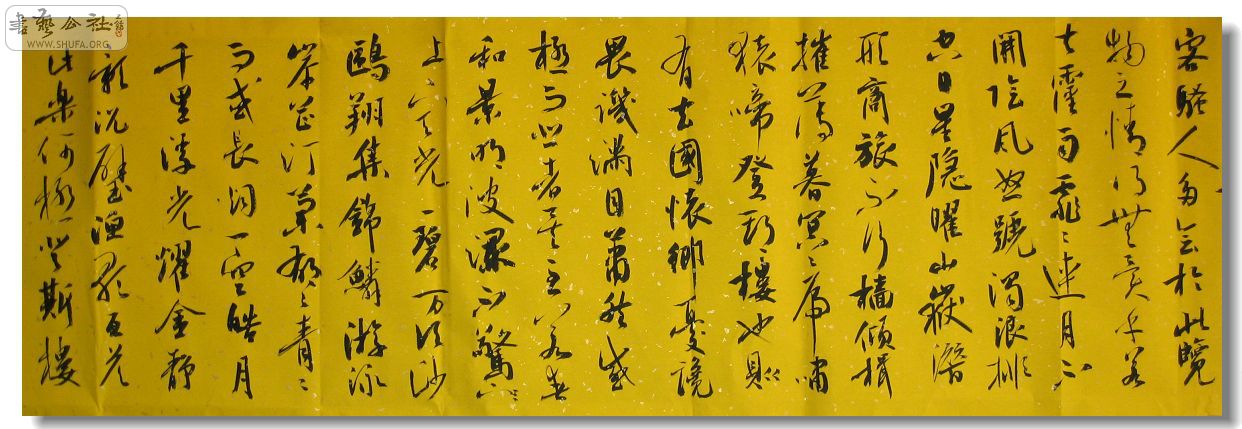 書藝公社
WWW.SHUFA.ORG
客騷人多会於此覽
物之情得無異乎若
夫霪雨霏霏連月不
開陰風怒號濁浪排
空日星隐曜山嶽潛
形商旅不行檣傾楫
摧薄暮冥冥虎嘯
猿啼登斯樓也則
有去國懷鄉憂讒
畏譏滿目蕭然感
極而悲者矣至若春
和景明波瀾不驚
上下天光一碧万頃沙
鷗翔集錦鱗游泳
岸芷汀蘭郁郁青青
而或長烟一空皓月
千里浮光耀金靜
影沉璧漁歌互答
此樂何極登斯樓